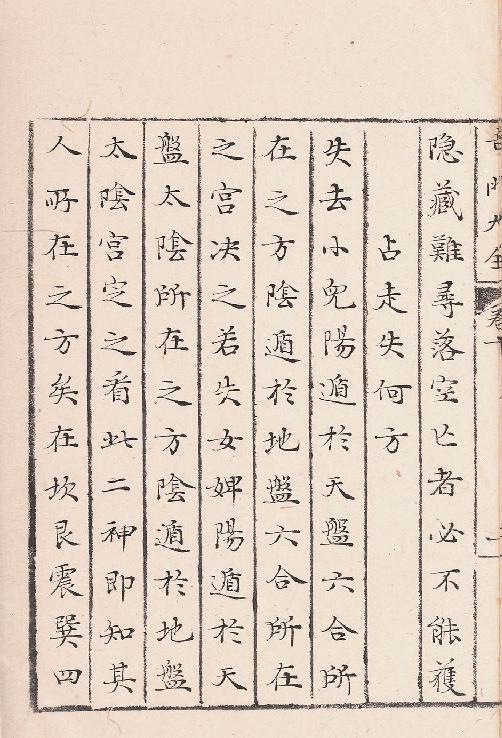 隐藏難尋落空亡者必不能獲
占走失何方
失去小兒陽遁於天盤六合所
在之方陰遁於地盤六合所在
之宮决之若失女婢陽遁於天
盤太陰所在之方陰遁於地盤
太陰宮定之看此二神即知其
人所在之方矣在坎艮震巽四